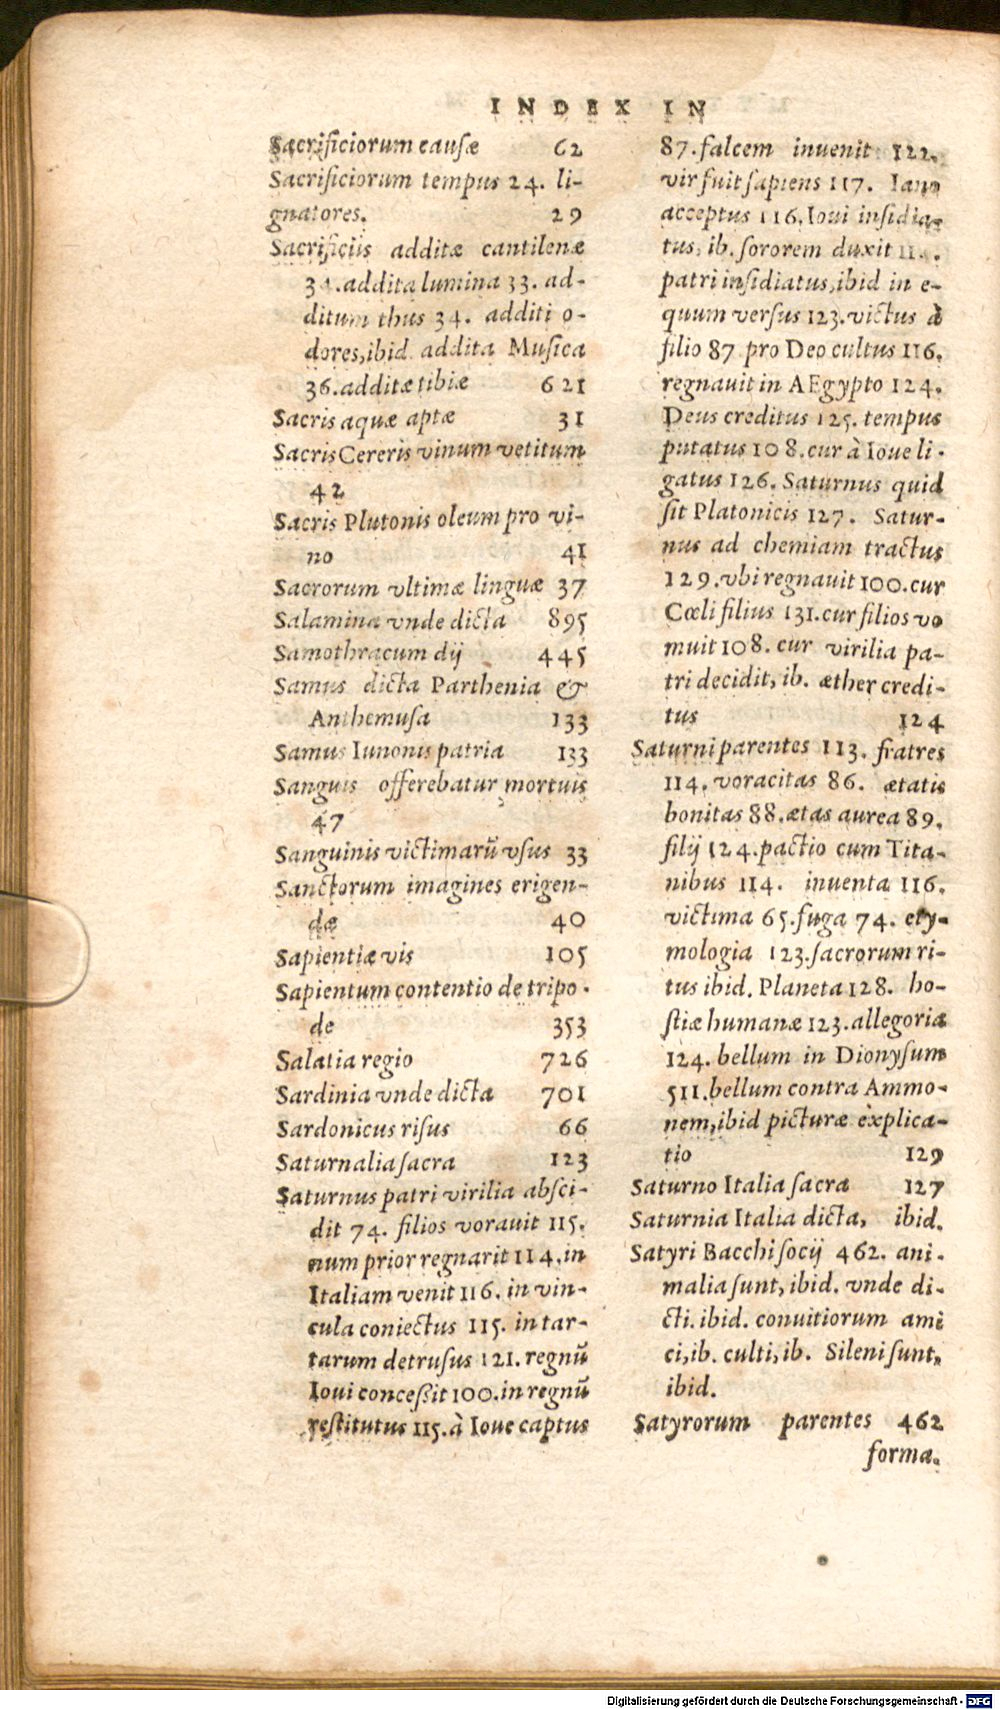 INDEX IN
Sacrificiorum causæ 62
Sacrificiorum tempus 24. li-
gnatores. 29
Sacrificiis additæ cantilenæ
34. addita lumina 33. ad-
ditum thus 34. additi o-
dores, ibid. addita Musica
36. additæ tibiæ 621
Sacris aquæ aptæ 31
Sacris Cereris vinum vetitum
42
Sacris Plutonis oleum pro vi-
no 41
Sacrorum vltimæ linguæ 37
Salamina vnde dicta 895
Samothracum dij 445
Samus dicta Parthenia &
Anthemusa 133
Samus Iunonis patria 133
Sanguis offerebatur mortuis
47
Sanguinis victimarũ vsus 33
Sanctorum imagines erigen-
dæ 40
Sapientiæ vis 105
Sapientum contentio de tripo-
de 353
Salatia regio 726
Sardinia vnde dicta 701
Sardonicus risus 66
Saturnalia sacra 123
Saturnus patri virilia absci-
dit 74. filios vorauit 115.
num prior regnarit 114. in
Italiam venit 116. in vin-
cula coniectus 115. in tar-
tarum detrusus 121. regnũ
Ioui concessit 100. in regnũ
restitutus 115. à Ioue captus
87. falcem inuenit 122.
vir fuit sapiens 117. Iano
acceptus 116. Ioui insidia-
tus, ib. sororem duxit
patri insidiatus, ibid in e-
quum versus 123. victus à
filio 87 pro Deo cultus 116.
regnauit in AEgypto 124.
Deus creditus 125. tempus
putatus 108. cur à Ioue li-
gatus 126. Saturnus quid
sit Platonicis 127. Satur-
nus ad chemiam tractus
129. vbi regnauit 100. cur
Cœli filius 131. cur filios vo
muit 108. cur virilia pa-
tri decidit, ib. æther credi-
tus 124
Saturni parentes 113. fratres
114. voracitas 86. ætatis
bonitas 88. ætas aurea 89.
filij 124. pactio cum Tita-
nibus 114. inuenta 116.
victima 65. fuga 74. ety-
mologia 123. sacrorum ri-
tus ibid. Planeta 128. ho-
stiæ humanæ 123. allegoria
124. bellum in Dionysum
511. bellum contra Ammo-
nem, ibid picturæ explica-
tio 129
Saturno Italia sacra 127
Saturnia Italia dicta, ibid.
Satyri Bacchi socij 462. ani-
malia sunt, ibid. vnde di-
cti. ibid. conuitiorum ami
ci, ib. culti, ib. Sileni sunt,
ibid.
Satyrorum parentes 462
forma.
Digitalisierung gefördert durch die Deutsche Forschungsgemeinschaft - DFG